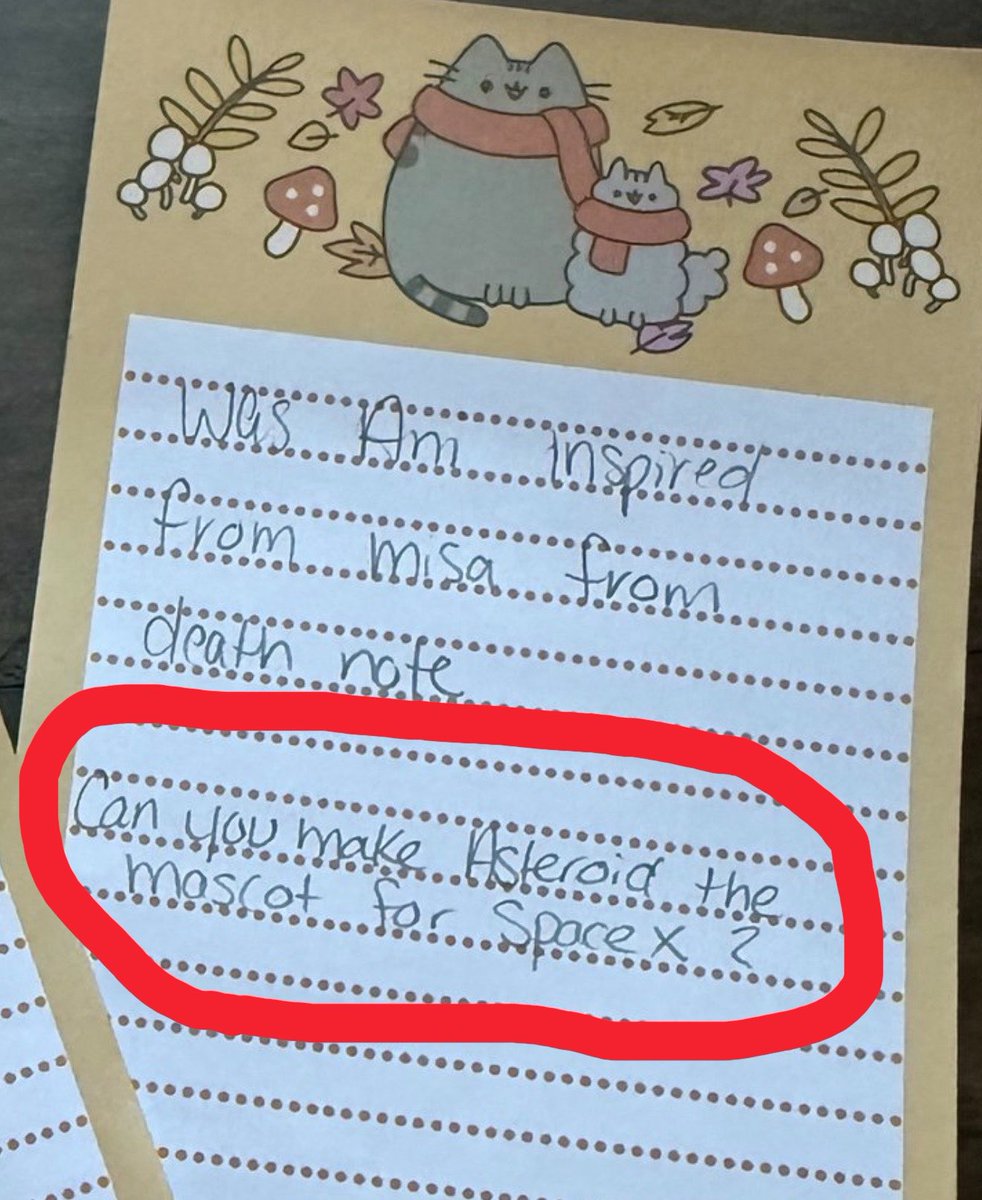 Was Am inspired
from misa from
death note
Can you make Asteroid the
mascot for Space X ?